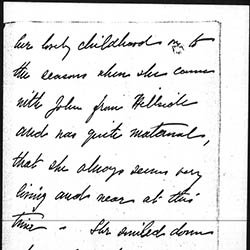 her lovely childhood &
the seasons when she came
with John from Hillside
and was quite maternal,
that she always seems very
living and near at this
time - She smiled down